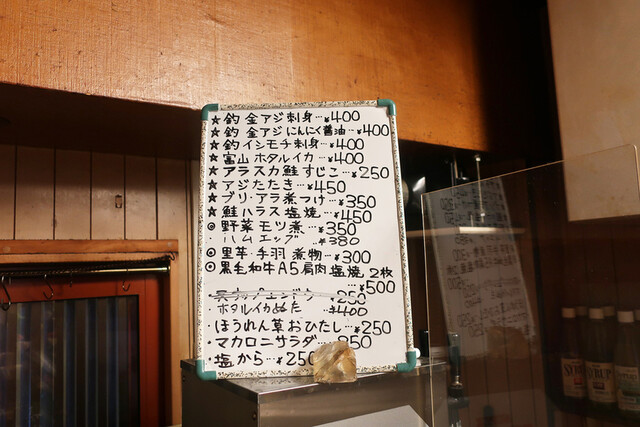 ★釣 金アジ刺身…¥400
★釣 金アジにんにく醤油…¥400
★釣イシモチ刺身…¥400
★富山 ホタルイカ…¥400
★アラスカ鮭すじこ…¥250
★アジたたき…¥450
★ブリ・アラ煮つけ…¥350
★鮭ハラス塩焼…¥450
◎野菜モツ煮…¥350
・ハムエッグ…¥380
◎里芋・手羽煮物…¥300
◎黒毛和牛A5肩肉塩焼2枚
…¥500
¥250
ホタルイカぬた ¥400
・ほうれん草おひたし…¥250
・マカロニサラダ…350
・塩から…¥250
SYRUP
SYRUP